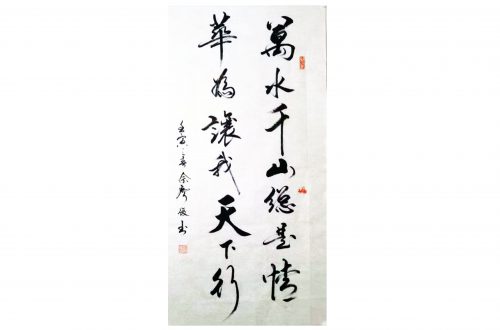 萬水千山總是情
華為讓我天下行
壬寅